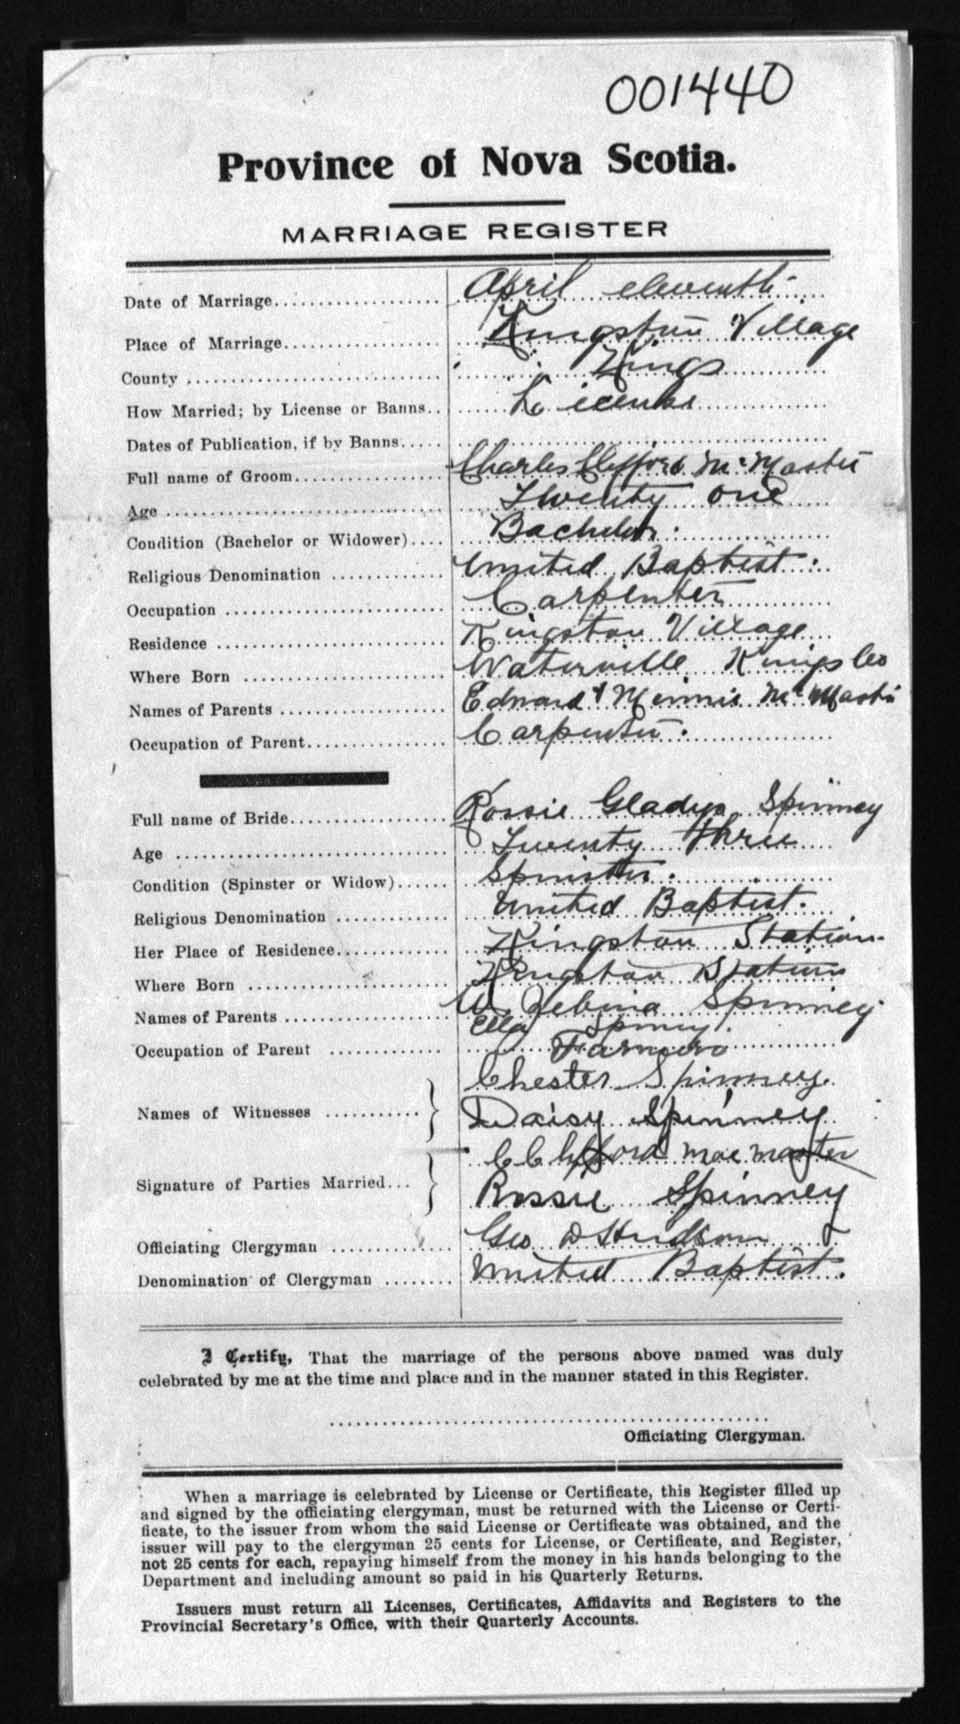 001440
Province of Nova Scotia.
MARRIAGE REGISTER
Date of Marriage.................... April eleventh
Place of Marriage.................... Kingston Village
County .................... Kings
How Married; by License or Banns.. License
Dates of Publication, if by Banns.....
Full name of Groom.................... Charles Clifford McMaster
Age .................... Twenty one
Condition (Bachelor or Widower).... Bachelor.
Religious Denomination .............. United Baptist.
Occupation .................... Carpenter
Residence .................... Kingston Village
Where Born .................... Waterville Kings Co
Names of Parents .................... Edward & Minnie McMaster
Occupation of Parent.................. Carpenter.
Full name of Bride.................... Rossie Gladys Spinney
Age .................... Twenty three
Condition (Spinster or Widow)...... Spinster.
Religious Denomination .............. United Baptist.
Her Place of Residence.............. Kingston Station
Where Born .................... Kingston Station
Names of Parents .................... W. Spinney
Ella Spinney.
Occupation of Parent .............. Farmer
Chester Spinney.
Names of Witnesses ............ Daisy Spinney
C Clifford MacMaster
Signature of Parties Married... Rossie Spinney
Officiating Clergyman .............. Geo D Hudson
Denomination of Clergyman ........ United Baptist.
I Certify, That the marriage of the persons above named was duly
celebrated by me at the time and place and in the manner stated in this Register.
Officiating Clergyman.
When a marriage is celebrated by License or Certificate, this Register filled up
and signed by the officiating clergyman, must be returned with the License or Certi-
ficate, to the issuer from whom the said License or Certificate was obtained, and the
issuer will pay to the clergyman 25 cents for License, or Certificate, and Register,
not 25 cents for each, repaying himself from the money in his hands belonging to the
Department and including amount so paid in his Quarterly Returns.
Issuers must return all Licenses, Certificates, Affidavits and Registers to the
Provincial Secretary's Office, with their Quarterly Accounts.